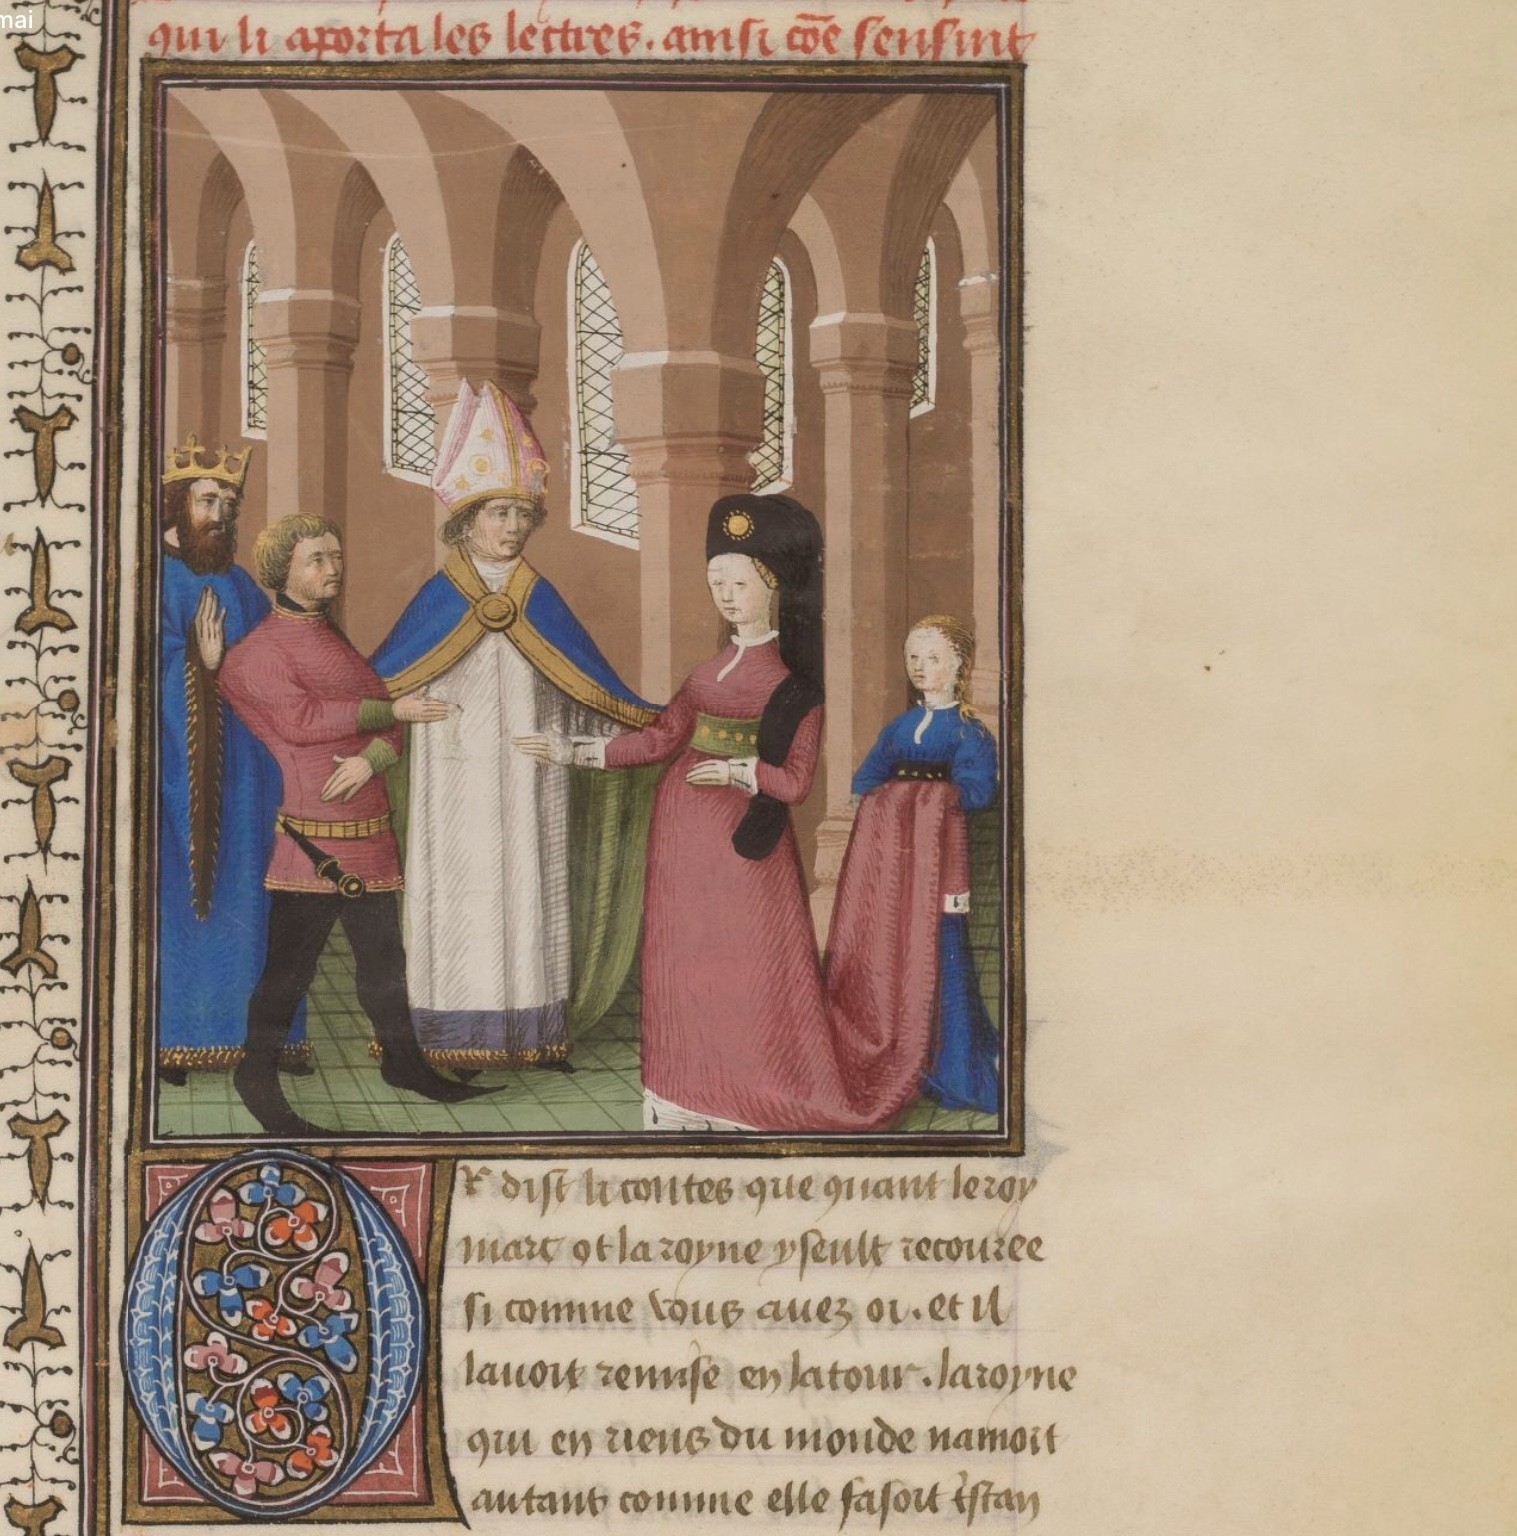 mai
qui li aporta les lectres. ainsi cõe sensuit
Or dist li contes que quant le roy
marc ot la royne yseult recouree
si comme vous auez oi. et il
lauoit remise en la tour. la royne
qui en riens du monde namoit
autant comme elle fasoit tstan